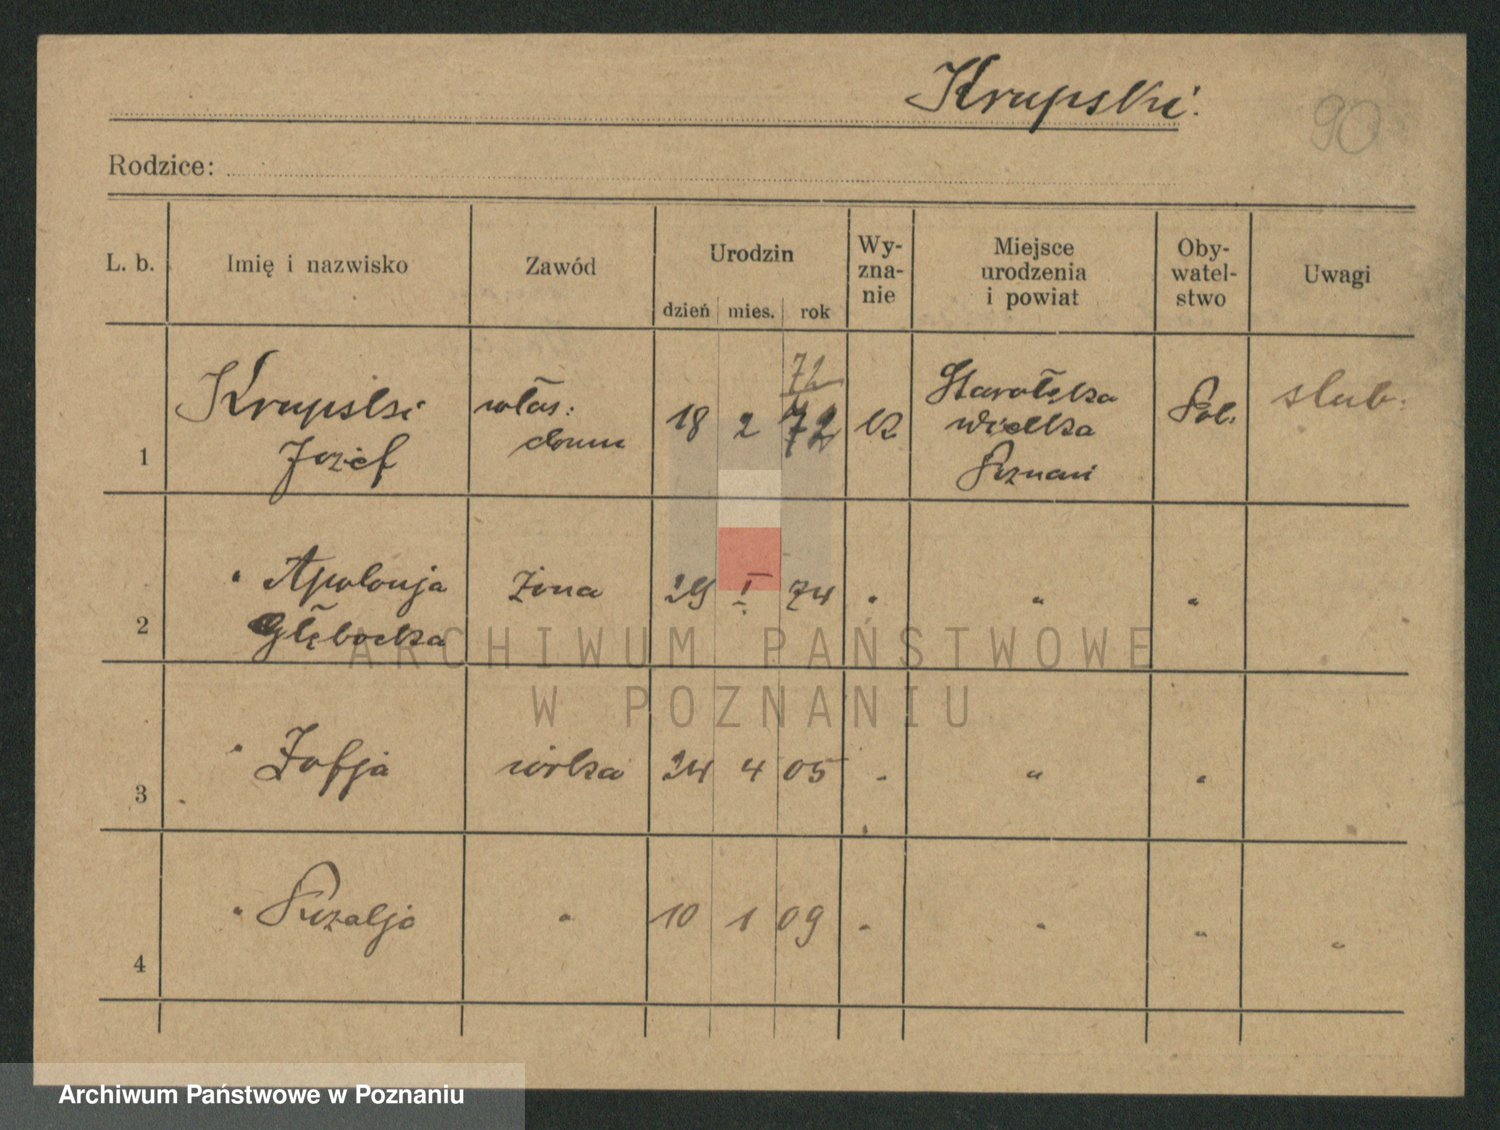 Krupski.
90
Rodzice:
L. b. Imię i nazwisko Zawód Urodzin Wy-zna-nie Miejsce urodzenia i powiat Oby-watel-stwo Uwagi
dzień mies. rok
72
1 Krupski Józef włas: domu 18 2 72 k Starołęka wielka Poznań Pol. slub.
2 " Apolonja Głębocka żona 29 I 74 " " "
3 " Zofja córka 24 4 05 " " "
4 " " 10 1 09 " " " "
ARCHIWUM PAŃSTWOWE
W POZNANIU
Archiwum Państwowe w Poznaniu